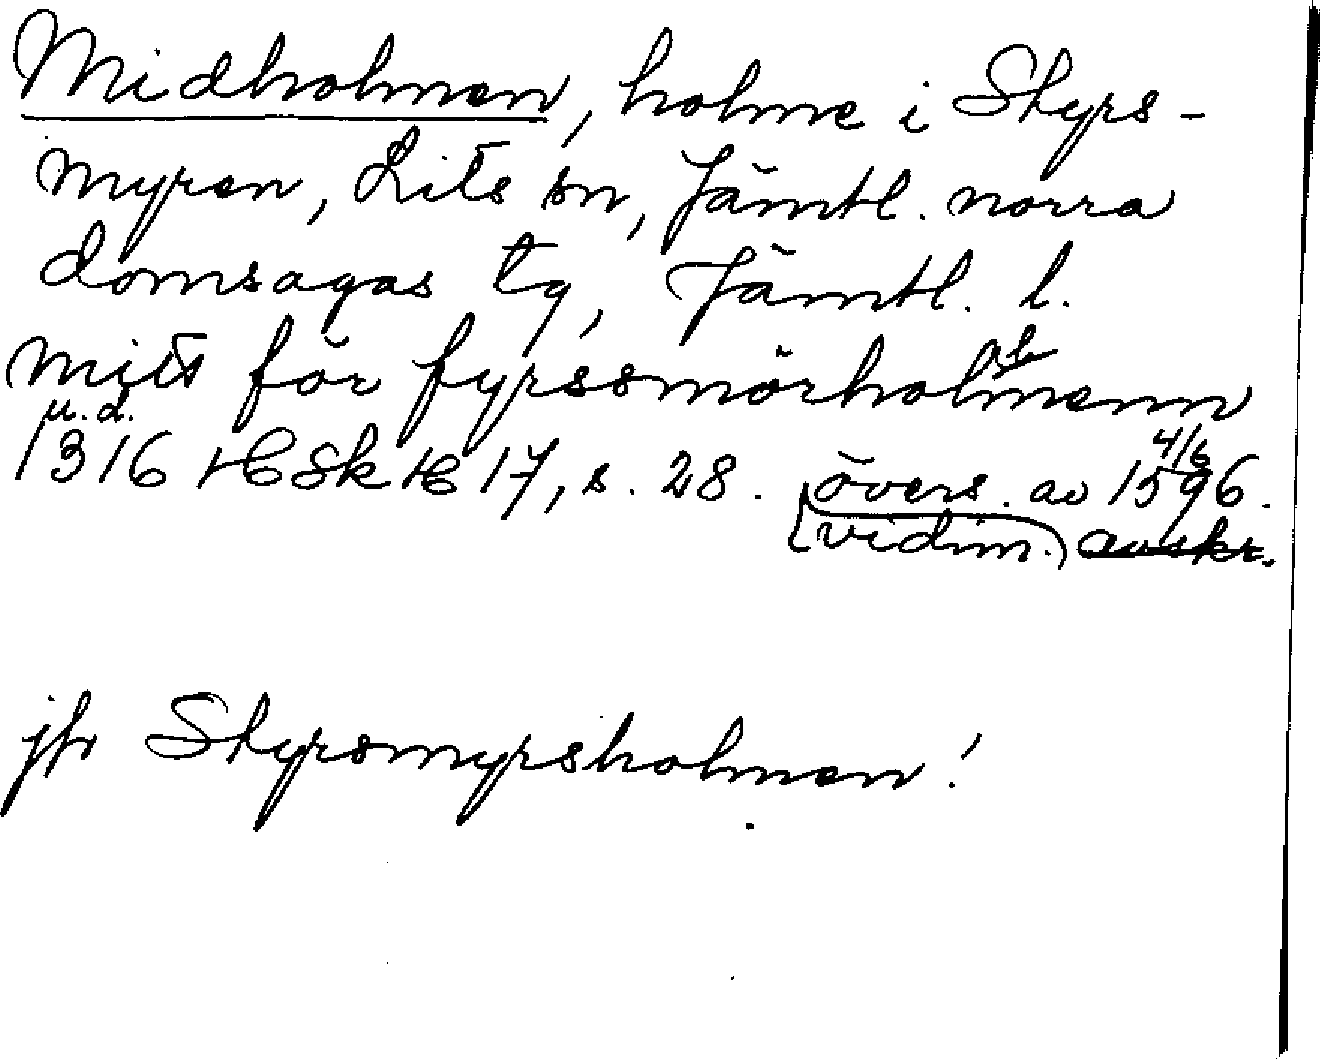 Midholmen, holme i Skyrs-
myren, Lits sn, Jämtl. norra
domsagas tg, Jämtl. l.
mitt för fyrssmörholmenn
ab
u.d.
1316 HSH 17, s. 28. övers. av 4/6 1596.
(vidim.) avskr.
jfr Skyrsmyrsholmen!